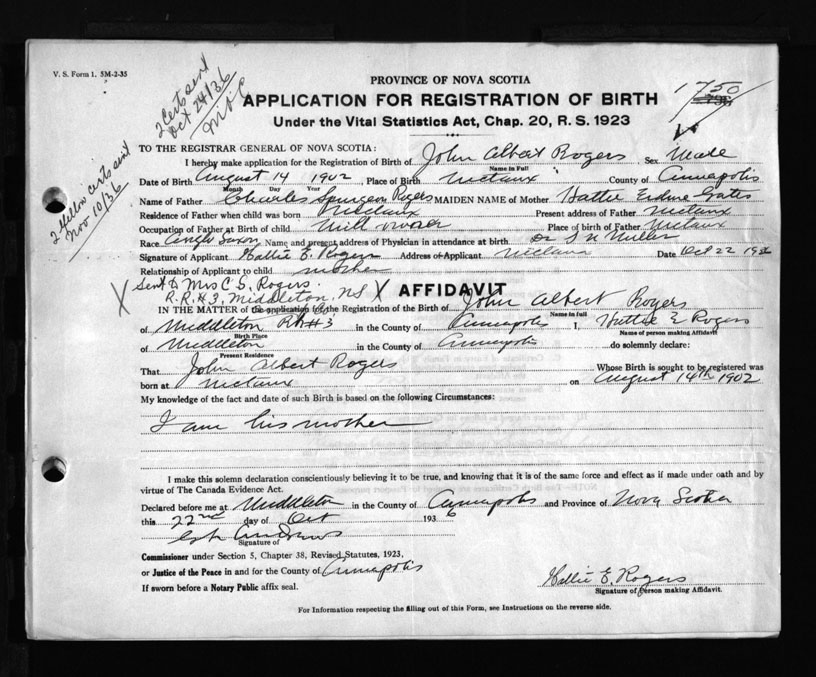 V. S. Form 1. 5M-2-35
2 Certs sent
Oct 24/36
2 yellow certs sent
Nov 10/36
PROVINCE OF NOVA SCOTIA
1750
APPLICATION FOR REGISTRATION OF BIRTH
Under the Vital Statistics Act, Chap. 20, R. S. 1923
TO THE REGISTRAR GENERAL OF NOVA SCOTIA:
I hereby make application for the Registration of Birth of John Albert Rogers Sex Male
Name in Full
Date of Birth August 14 1902, Place of Birth Nictaux County of Annapolis
Month Day Year
Name of Father Charles Spurgeon Rogers MAIDEN NAME of Mother Hattie Gates
Residence of Father when child was born Nictaux Present address of Father Nictaux
Occupation of Father at Birth of child Mill Place of birth of Father Nictaux
Race Anglo Saxon Name and present address of Physician in attendance at birth Dr S N Miller
Signature of Applicant Hattie E. Rogers Address of Applicant Nictaux Date Oct 22 1936
Relationship of Applicant to child mother
X Sent to Mrs C S. Rogers.
R.R.#3, Middleton, NS X
AFFIDAVIT
IN THE MATTER of the application for the Registration of the Birth of John Albert Rogers
Name in full
of Middleton RR#3 in the County of Annapolis I, Hattie E Rogers
Birth Place Name of person making Affidavit
of Middleton in the County of Annapolis do solemnly declare:
Present Residence
That John Albert Rogers Whose Birth is sought to be registered was
born at Nictaux on August 14th 1902
My knowledge of the fact and date of such Birth is based on the following Circumstances:
I am his mother
I make this solemn declaration conscientiously believing it to be true, and knowing that it is of the same force and effect as if made under oath and by
virtue of The Canada Evidence Act.
Declared before me at Middleton in the County of Annapolis and Province of Nova Scotia
this 22nd day of Oct 1936
Signature of
Commissioner under Section 5, Chapter 38, Revised Statutes, 1923,
or Justice of the Peace in and for the County of Annapolis
If sworn before a Notary Public affix seal.
Hattie E. Rogers
Signature of person making Affidavit.
For Information respecting the filling out of this Form, see Instructions on the reverse side.